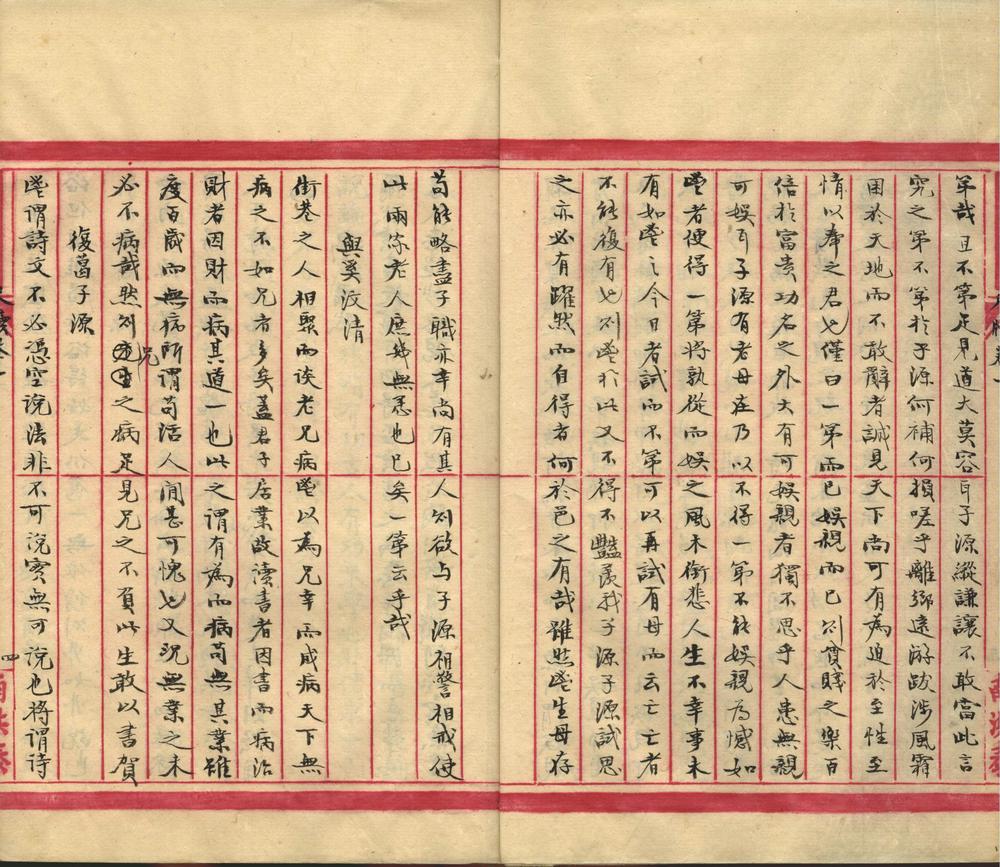 第哉且不第足見道大莫容耳子源縱謙讓不敢當此言
究之第不第於子源何補何損嗟乎離鄉遠游跋涉風霜
困於天地而不敢辭者誠見天下尚可有為迫於至性至
情以奉之君也僅曰一第而已娛親而已則貧賤之樂百
倍於富貴功名之外大有可娛親者獨不思乎人患無親
可娛耳子源有老母在乃以不得一第不能娛親為憾如
瑩者便得一第將孰從而娛之風木銜悲人生不幸事未
有如瑩之今日者試而不第可以再試有母而云亡亡者
不能復有也則瑩於此又不得不豔羨我子源子源試思
之亦必有躍然而自得者何於邑之有哉雖然瑩生母存
苟能略盡子職亦幸尚有其人則欲与子源相警相戒使
此兩家老人庶幾無恙也已矣一第云乎哉
與奚汶清
街巷之人相聚而談老兄病瑩以為兄幸而戚病天下無
病之不如兄者多矣蓋君子居業故讀書者因書而病治
財者因財而病其道一也此之謂有為而病苟無其業雖
度百歲而無病所謂苟活人間甚可愧也又況無業之未
必不病哉然則兄之病足見兄之不負此生敢以書賀
復葛子源
瑩謂詩文不必憑空說法非不可說實無可說也將謂詩
四